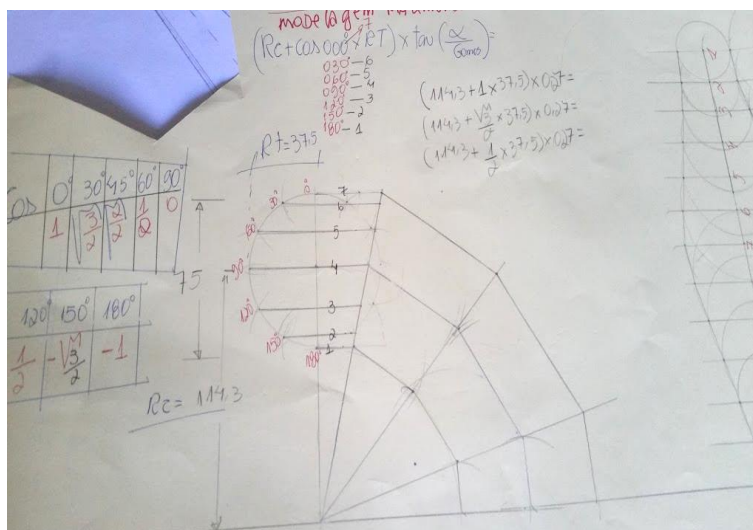 modelagem
(Rc+cos000°xRT) x tan(α/Gomos)=
030°-6
060°-5
090°-4
120°-3
150°-2
180°-1
(114,3+1x37,5)x0,27=
(114,3+√3/2x37,5)x0,27=
(114,3+1/2x37,5)x0,27=
Rt=37,5
Cos 0° 30° 45° 60° 90°
1 √3/2 √2/2 1/2 0
120° 150° 180°
1/2 -√3/2 -1
75
Rc= 114,3
0° 7
30° 6
60° 5
90° 4
120° 3
150° 2
180° 1